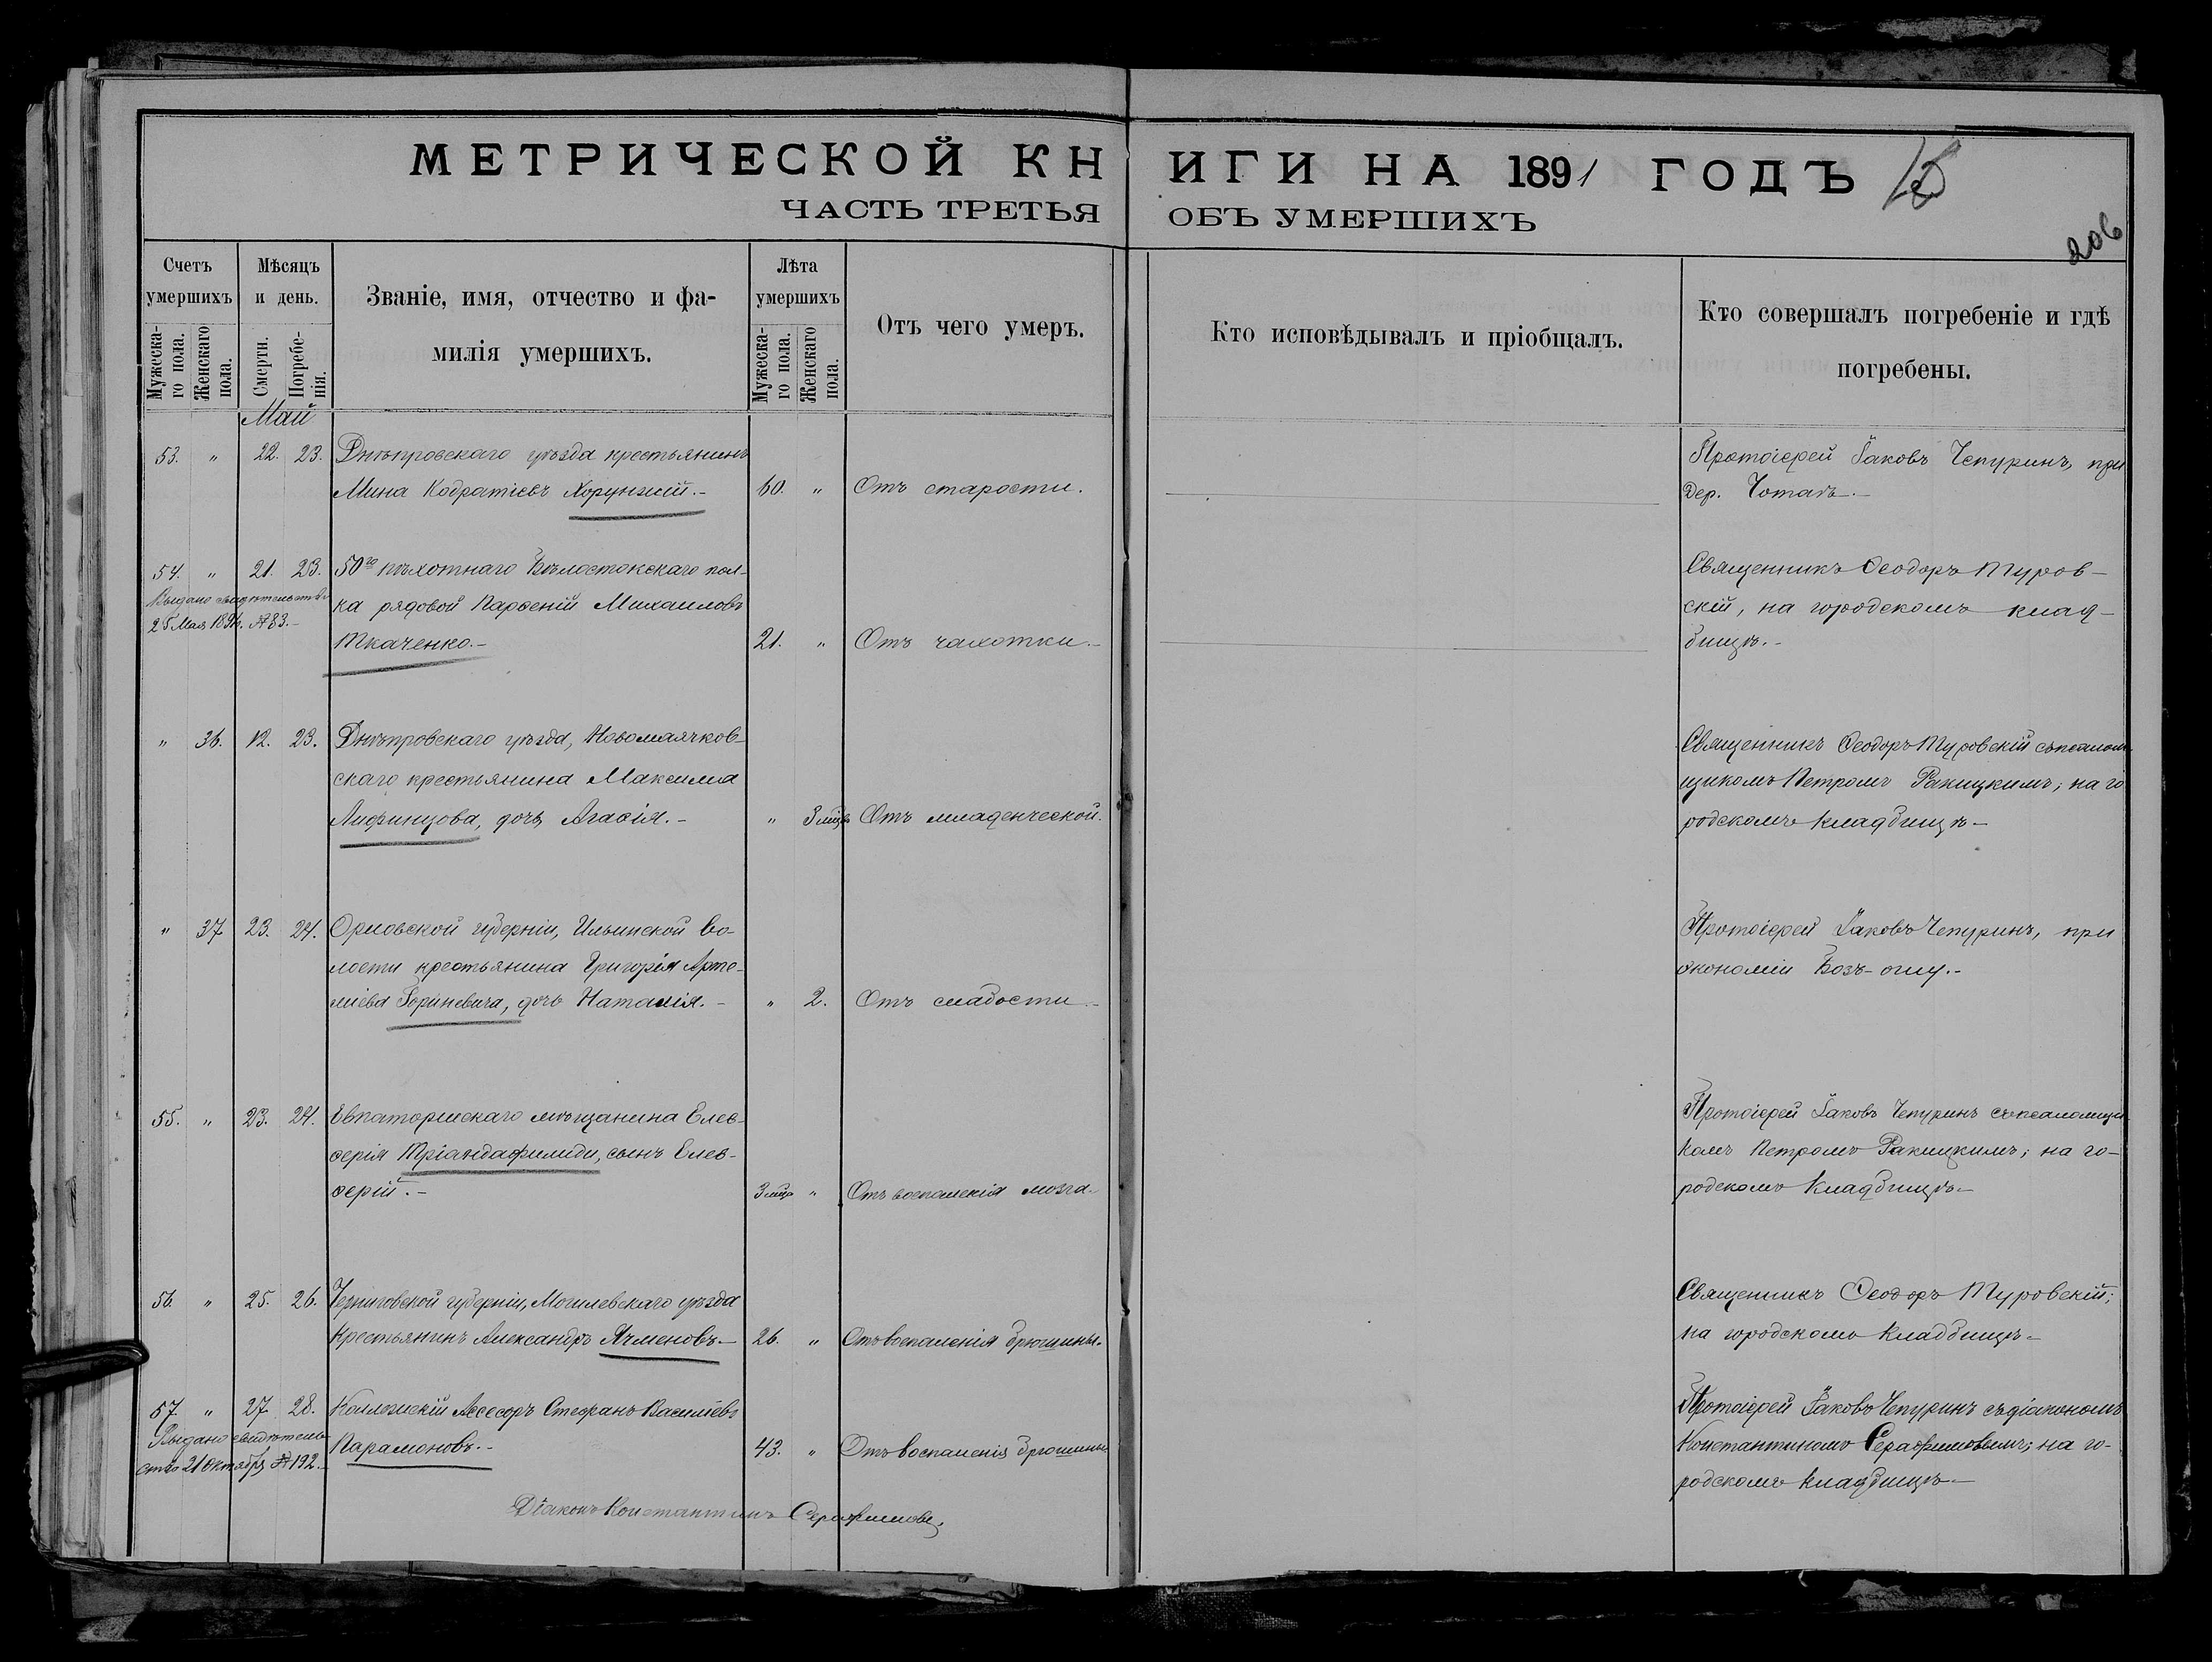 МЕТРИЧЕСКОЙ КНИГИ НА 1891 ГОДЪ
206
ЧАСТЬ ТРЕТЬЯ ОБЪ УМЕРШИХЪ
Счетъ умершихъ
Мужеска-го пола.
Женскаго пола.
Мѣсяцъ и день.
Смерти.
Погребе-нія.
Званіе, имя, отчество и фа-
милія умершихъ.
Лѣта умершихъ
Мужеска-го пола.
Женскаго пола.
Отъ чего умеръ.
Кто исповѣдывалъ и пріобщалъ.
Кто совершалъ погребеніе и гдѣ
погребены.
Май
53. " 22. 23. Днѣпровскаго уѣзда крестьянинъ
Мина Кодратіевъ Хорунжій.- 60. " Отъ старости.
Протоіерей Іаковъ Чепуринъ, при
дер. Чотаѣ.-
54. " 21. 23. 50го пѣхотнаго Бѣлостокскаго пол-
ка рядовой Парѳеній Михаиловъ
Ткаченко.- 21. " Отъ чахотки.-
Выдано свидѣтельство
25 Мая 1891г. №83.-
Священникъ Ѳеодоръ Туров-
скій, на городскомъ клад-
бищѣ.-
" 36. 12. 23. Днѣпровскаго уѣзда, Новомаячков-
скаго крестьянина Максима
Анфинцова, дочь Агаѳія.- " 3 мцв Отъ младенческой.
Священникъ Ѳеодоръ Туровскій съ псалом-
щикомъ Петромъ Ракицкимъ; на го
родскомъ кладбищѣ-
" 37 23. 24. Орловской губерніи, Ильинской во-
лости крестьянина Григорія Арте-
міева Гориневича, дочь Наталія.- " 2. Отъ слабости.-
Протоіерей Іаковъ Чепуринъ, при
экономіи Бозъ-оглу.-
55. " 23. 24. Евпаторійскаго мѣщанина Елев-
ѳерія Тріандафилиди, сынъ Елев-
ѳерій.- 3 мцв " Отъ воспаленія мозга.
Протоіерей Іаковъ Чепуринъ съ псаломщи
комъ Петромъ Ракицкимъ; на го-
родскомъ кладбищѣ-
56. " 25. 26. Черниговской губерніи, Могилевскаго уѣзда
крестьянинъ Александръ Ячменовъ.- 26. " Отъ воспаленія брюшины.
Священникъ Ѳеодоръ Туровскій;
на городскомъ кладбищѣ-
57. " 27 28. Коллежскій Ассесоръ Стефанъ Василіевъ
Парамоновъ.- 43. " Отъ воспаленія брюшины
Выдано свидѣтель-
ство 21 Октября №192.-
Протоіерей Іаковъ Чепуринъ съ діакономъ
Константиномъ Серафимовымъ; на го-
родскомъ кладбищѣ-
Діаконъ Константинъ Серафимовъ.